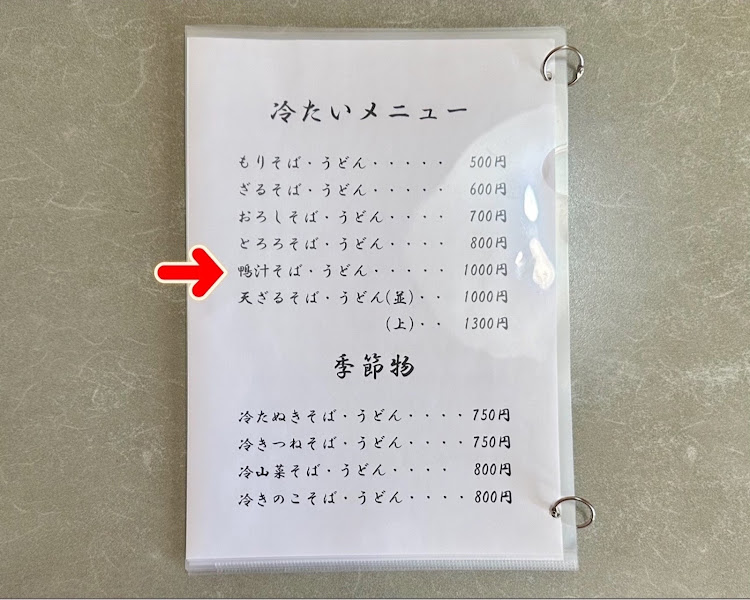 冷たいメニュー
もりそば・うどん・・・・・ 500円
ざるそば・うどん・・・・・ 600円
おろしそば・うどん・・・・ 700円
とろろそば・うどん・・・・ 800円
鴨汁そば・うどん・・・・・ 1000円
天ざるそば・うどん(並)・・ 1000円
(上)・・ 1300円
季節物
冷たぬきそば・うどん・・・・750円
冷きつねそば・うどん・・・・750円
冷山菜そば・うどん・・・・ 800円
冷きのこそば・うどん・・・・800円